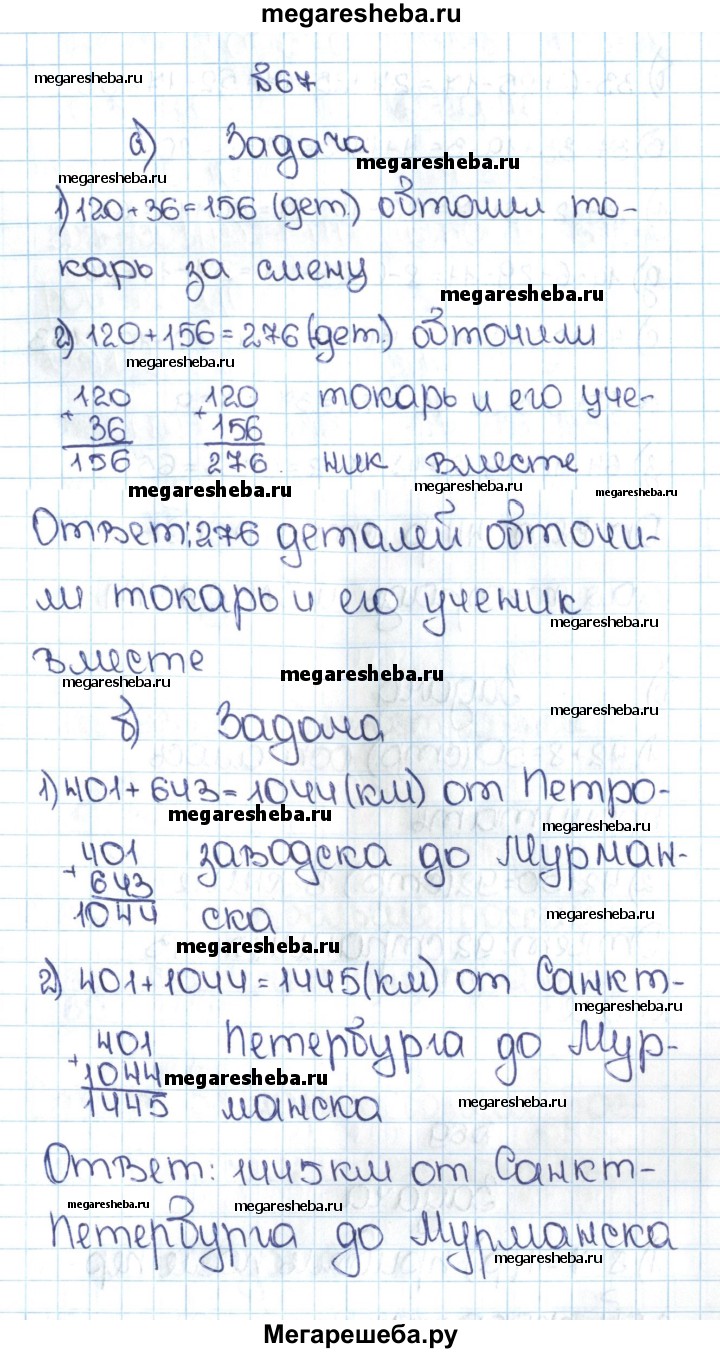 megaresheba.ru
megaresheba.ru
№67
а) Задача
megaresheba.ru
megaresheba.ru
1) 120+36=156 (дет.) обточил то-
карь за смену
megaresheba.ru
2) 120+156=276 (дет.) обточили
megaresheba.ru
120 120 токарь и его уче-
+ 36 + 156
156 276 ник вместе
megaresheba.ru megaresheba.ru megaresheba.ru
Ответ: 276 деталей обточи-
ли токарь и его ученик
megaresheba.ru
вместе
megaresheba.ru megaresheba.ru
б) Задача
megaresheba.ru
1) 401+643=1044 (км) от Петро-
megaresheba.ru
megaresheba.ru
401 заводска до Мурман-
+ 643
1044 ска
megaresheba.ru
megaresheba.ru
2) 401+1044=1445 (км) от Санкт-
megaresheba.ru
401 Петербурга до Мур-
+ 1044
megaresheba.ru
1445 манска
megaresheba.ru
Ответ: 1445 км от Санкт-
megaresheba.ru megaresheba.ru
Петербурга до Мурманска
megaresheba.ru
Мегарешеба.ру